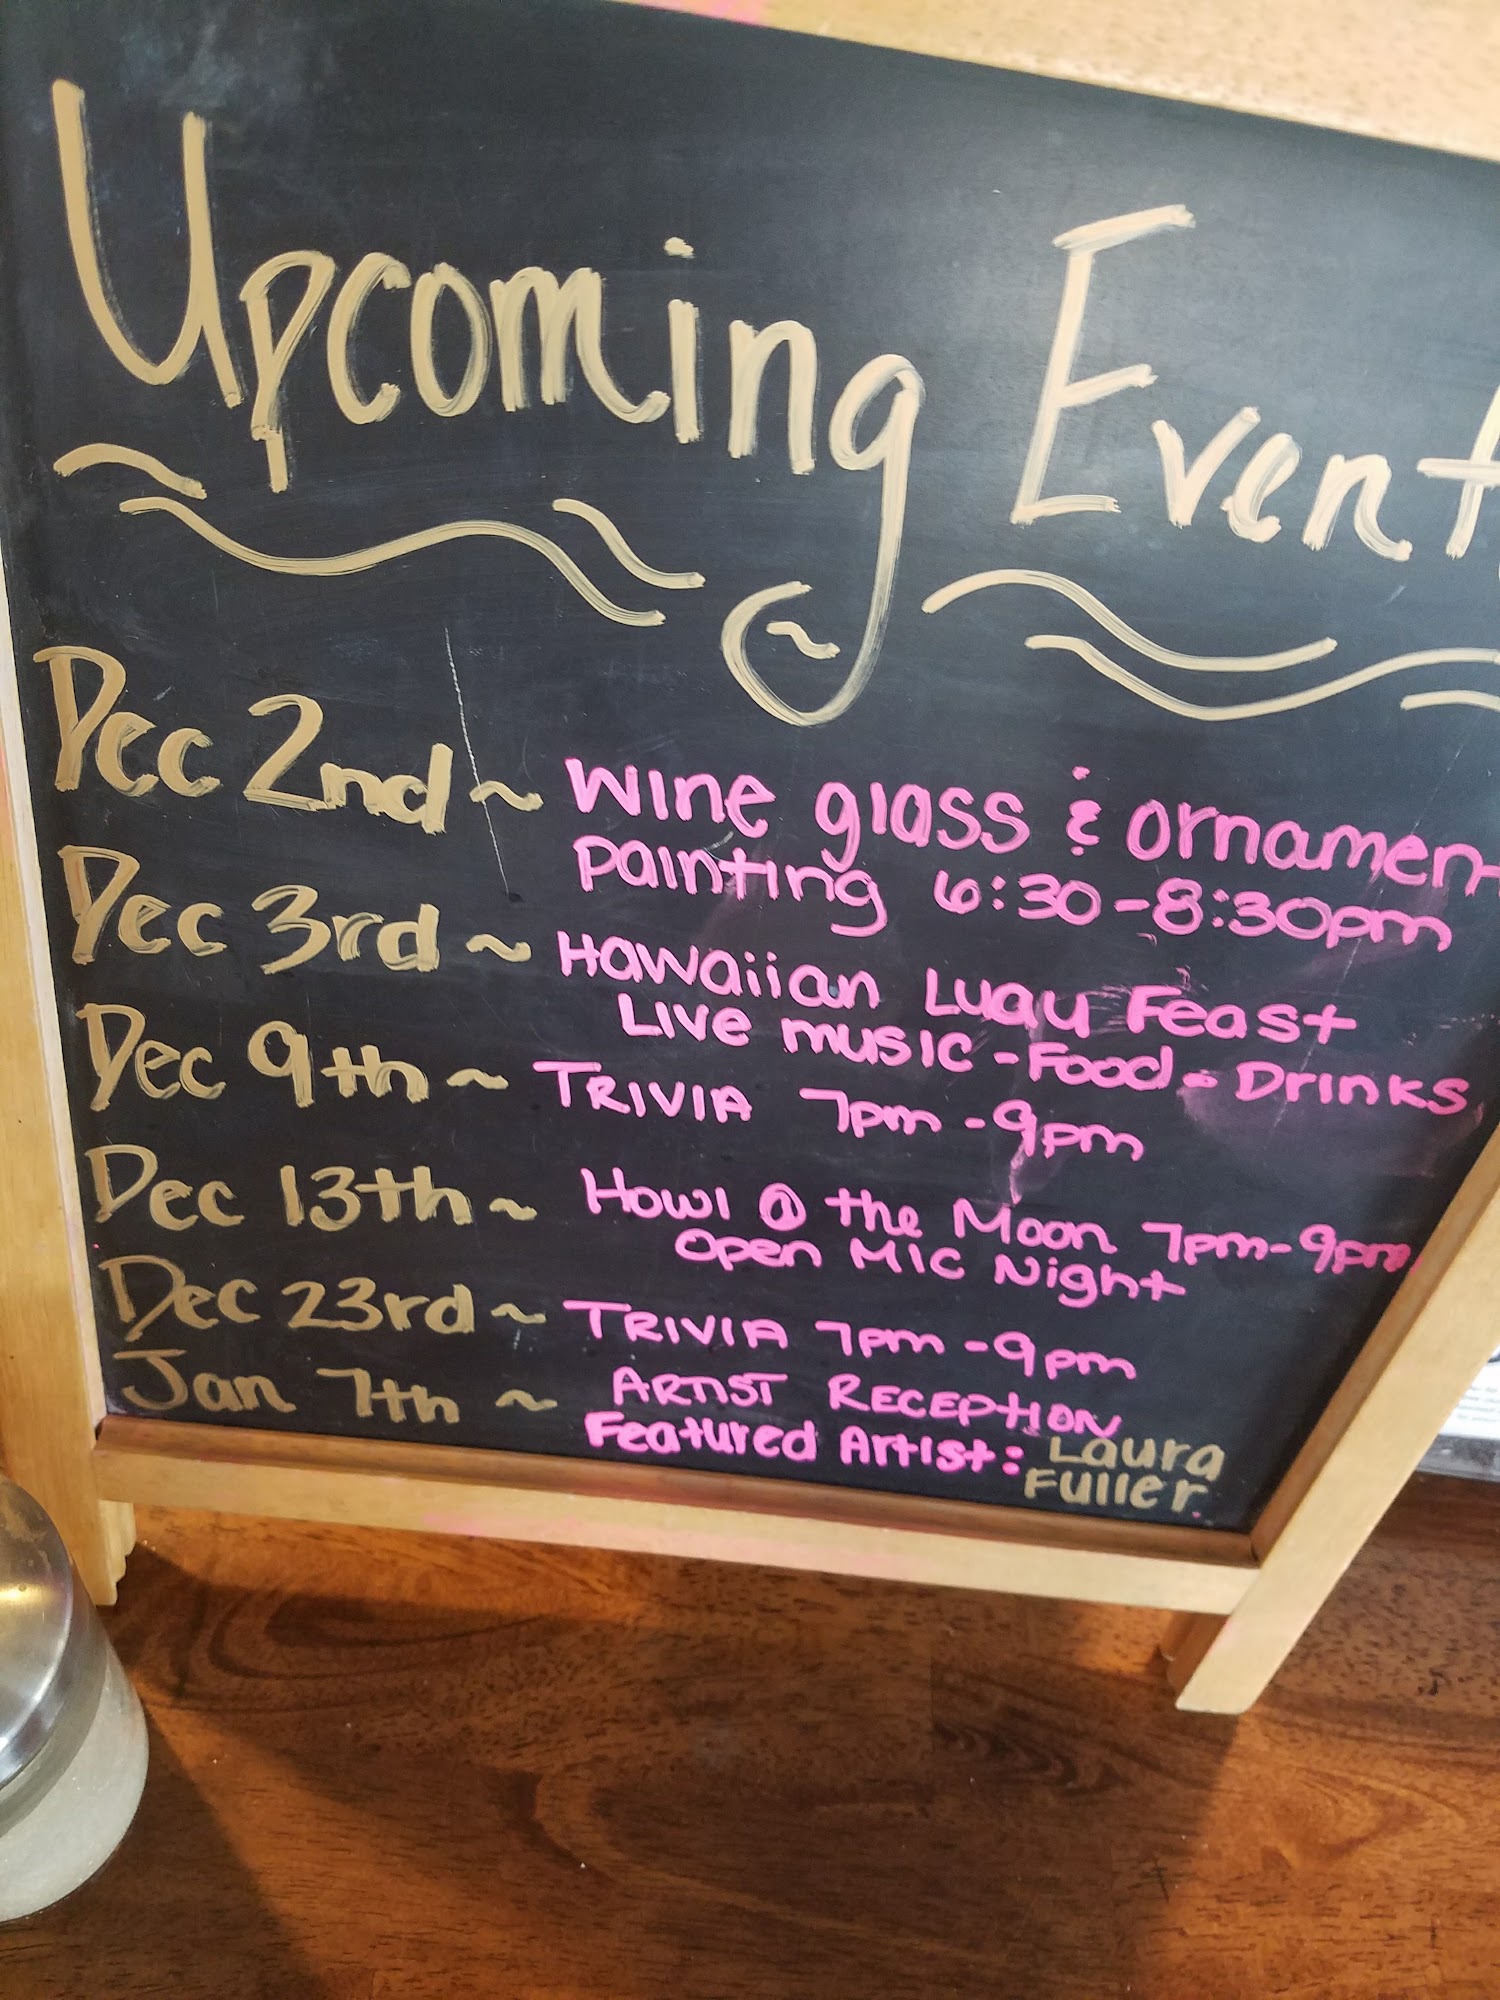 Upcoming Event
Dec 2nd ~ Wine glass & ornament
Painting 6:30-8:30pm
Dec 3rd ~ Hawaiian Luau Feast
Live music - Food - Drinks
Dec 9th ~ TRIVIA 7pm - 9pm
Dec 13th ~ Howl @ the Moon 7pm-9pm
Open Mic Night
Dec 23rd ~ TRIVIA 7pm - 9pm
Jan 7th ~ ARTIST RECEPTION
Featured Artist: Laura
Fuller